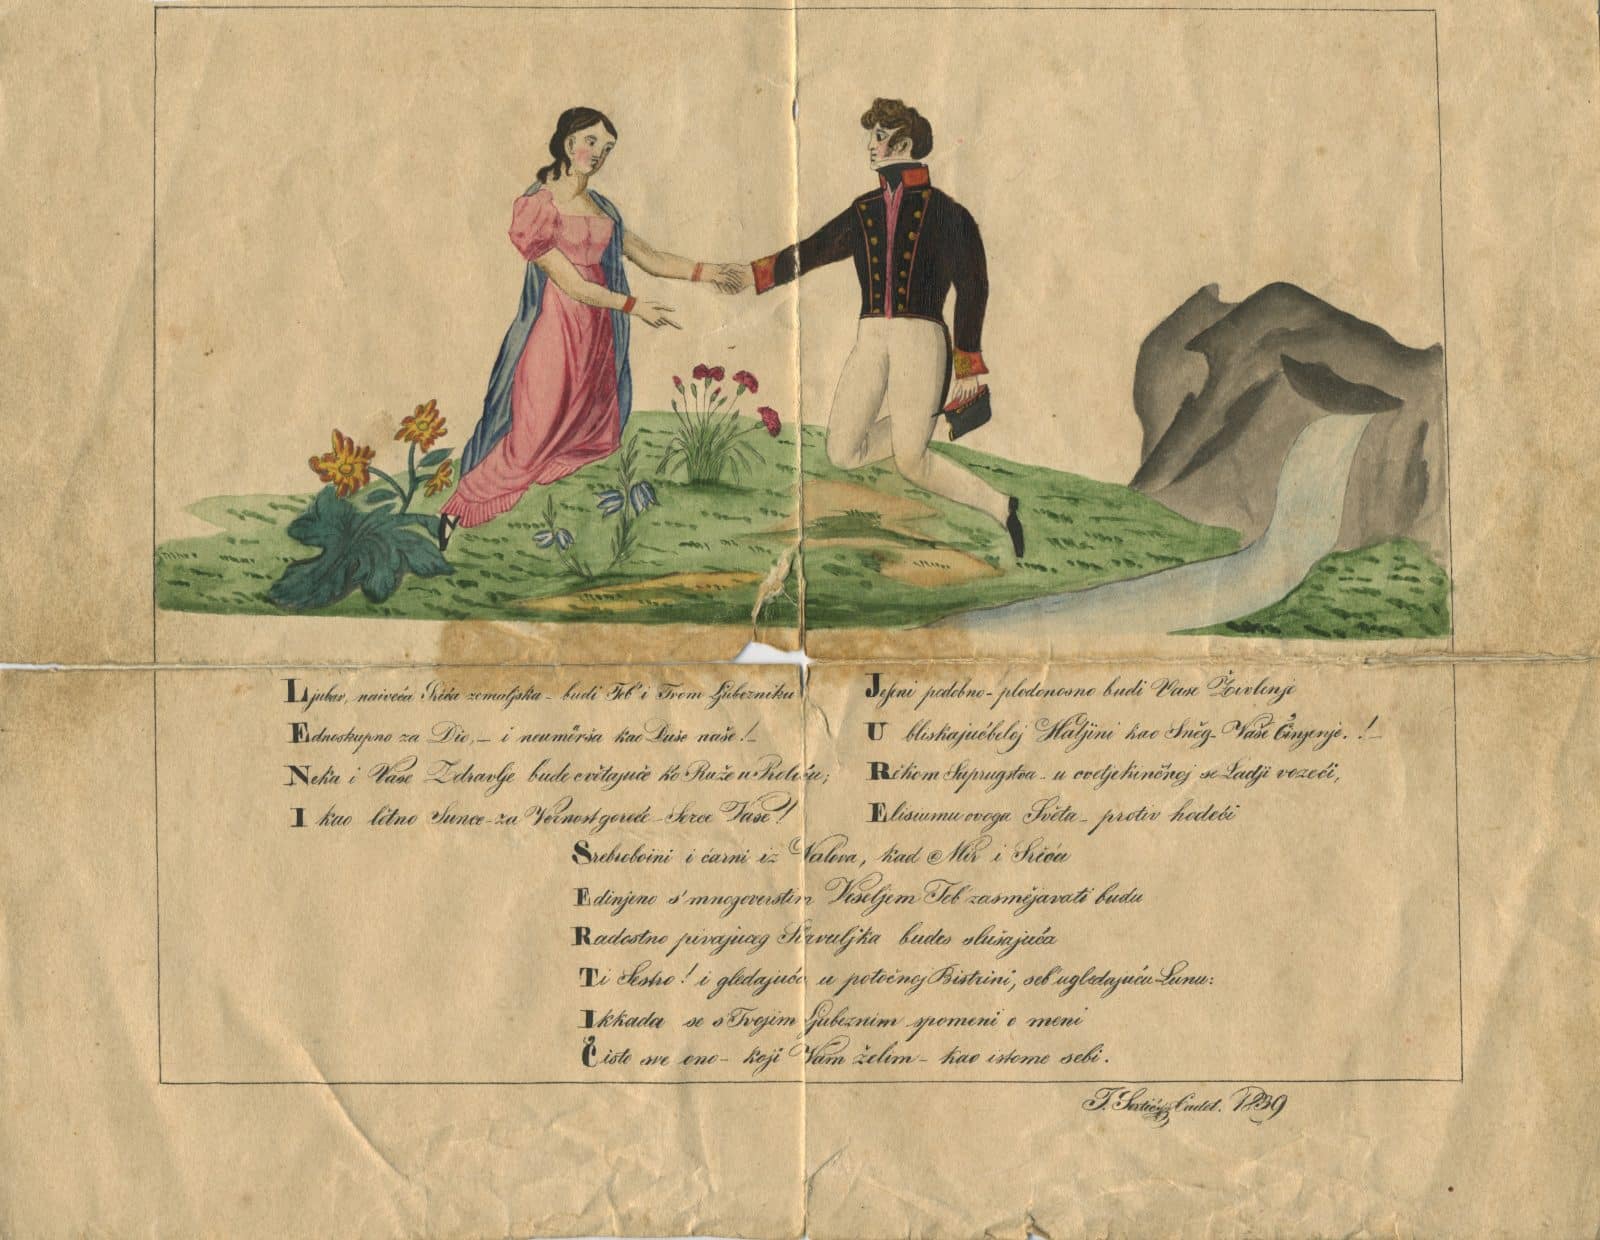 Ljubav, naiveća Srića zemaljska - budi Teb' i Tvom Ljubezniku
Ednoskupno za Dio, - i neumèrša kao Duše naše! -
Neka i Vaše Zdravlje bude cvĕtajuće kò Ruže u Proliću;
I kao lĕtno Sunce - za Vèrnost goreće - Serce Vaše!
Jeseni podobno - plodonosno budi Vaše Živlenje
U bliskajućbeloj Haljini kao Snĕg - Vaše Činjenje. ! -
Rĕkom Suprugstva - u cvĕtjekinčnoj se Ladji vozeći,
Elisiumu ovoga Svĕta - protiv hodeći
Srebroboini i čarni iz Valova, kad Mir i Srića
Edinjeno s' mnogoverstim Veseljem Teb' zasmĕjavati budu
Radostno pivajućeg Slavuljka budeš slušajuća
Ti Sestro! i gledajuća u potočnoj Bistrini, seb' ugledajuću Lunu:
Ikkada se s Tvojim Ljubeznim spomeni o meni
Čisto sve ono - koji Vam želim - kao istome sebi.
J. Sertić Cadet. 1839